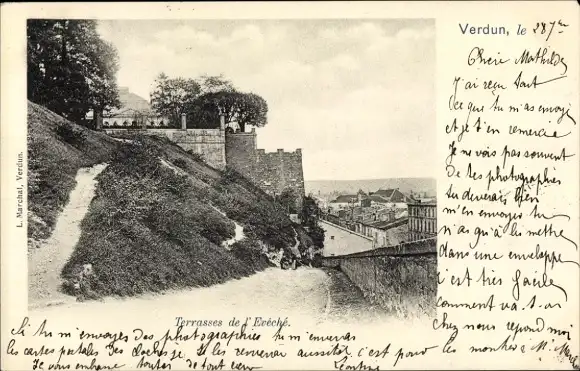 Verdun, le 28 7bre
Chérie Mathilde
J'ai reçu tout
ce que tu m'as envoyé
et je t'en remercie
Je ne vois pas souvent
de tes photographies
tu devrais bien
m'en envoyer tu
n'as qu'à les mettre
dans une enveloppe
c'est très facile
comment va-t-on
chez nous répond moi
L. Marchal, Verdun.
Terrasses de l'Evêché.
Si tu m'envoyes des photographies tu m'enverras
les cartes postales des cloches je te les renverrai aussitôt c'est pour les montrer à M.
Je vous embrasse toutes de tout cœur Léontine